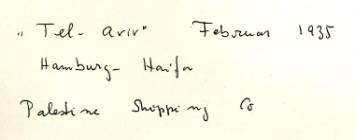 „Tel-Aviv" Februar 1935
Hamburg-Haifa
Palestine Shopping Co